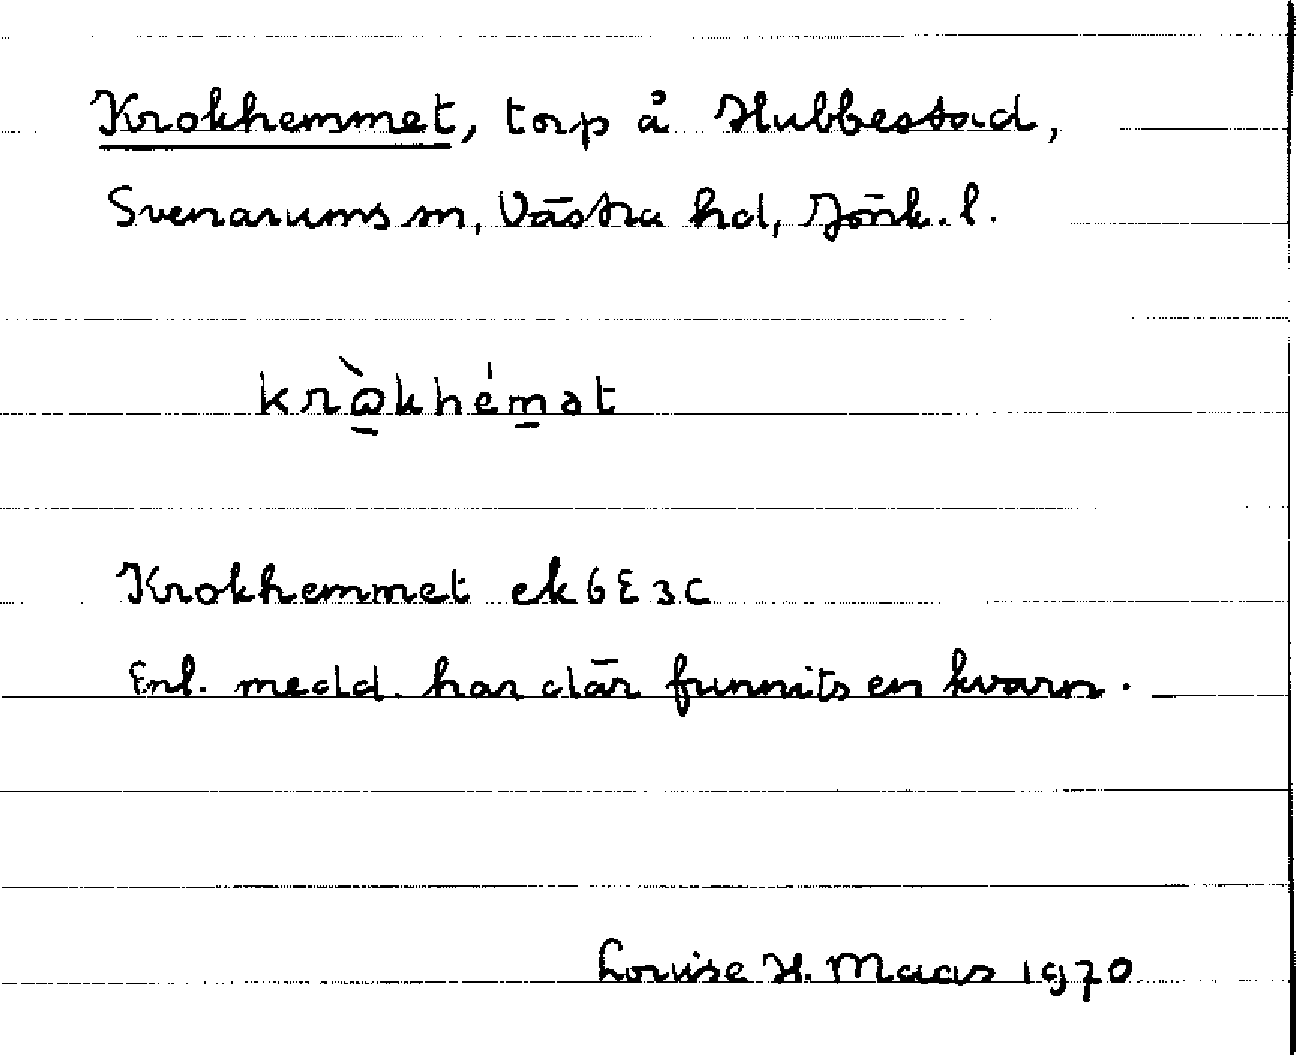 Krokhemmet, torp å Hubbestad,
Svenarums sn, Västra hd, Jönk. l.
krὼkhémat
Krokhemmet ek 6 E 3 c
Enl. medd. har där funnits en kvarn.
Louise H. Maas 1970